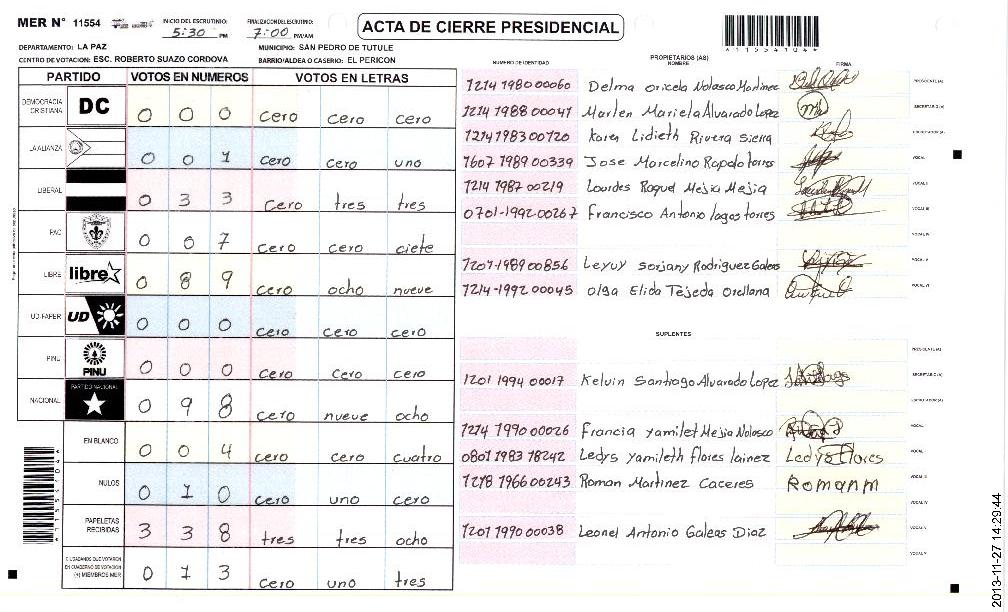 MER N° 11554
INICIO DEL ESCRUTINIO: 5:30 PM
FINALIZACION DEL ESCRUTINIO: 7:00 PM/AM
ACTA DE CIERRE PRESIDENCIAL
DEPARTAMENTO: LA PAZ
MUNICIPIO: SAN PEDRO DE TUTULE
CENTRO DE VOTACION: ESC. ROBERTO SUAZO CORDOVA
BARRIO/ALDEA O CASERIO: EL PERICON
PARTIDO VOTOS EN NUMEROS VOTOS EN LETRAS
DEMOCRACIA CRISTIANA DC 0 0 0 cero cero cero
LA ALIANZA 0 0 1 cero cero uno
LIBERAL 0 3 3 cero tres tres
PAC 0 0 7 cero cero ciete
LIBRE libre 0 8 9 cero ocho nueve
UD-FAPER UD 0 0 0 cero cero cero
PINU PINU 0 0 0 cero cero cero
NACIONAL PARTIDO NACIONAL 0 9 8 cero nueve ocho
EN BLANCO 0 0 4 cero cero cuatro
NULOS 0 1 0 cero uno cero
PAPELETAS RECIBIDAS 3 3 8 tres tres ocho
CIUDADANOS QUE VOTARON EN CUADERNO DE VOTACION (+) MIEMBROS MER 0 1 3 cero uno tres
NUMERO DE IDENTIDAD PROPIETARIOS (AS) NOMBRE FIRMA
1214 1980 00060 Delma oricela Nolasco Martinez PRESIDENTE (A)
1214 1988 00041 Marlen Mariela Alvarado Lopez SECRETARIO (A)
1214 1983 00720 Karen Lidieth Rivera Sierra ESCRUTADOR (A)
1607 1989 00339 Jose Marcelino Rapalo torres VOCAL I
1214 1987 00219 Lourdes Raquel Mejia Mejia VOCAL II
0701-1992-00267 Francisco Antonio lagos torres VOCAL III
VOCAL IV
1201-1989 00856 Leyuy sorjany Rodriguez Galeas VOCAL V
1214-1992 00045 olga Elida Tejeda Orellana VOCAL VI
SUPLENTES
PRESIDENTE (A)
1201 1994 00017 Kelvin Santiago Alvarado Lopez SECRETARIO (A)
ESCRUTADOR (A)
1214 1990 00026 Francia yamilet Mejia Nolasco VOCAL I
0801 1983 78242 Ledys yamileth flores lainez Ledys Flores VOCAL II
1218 1966 00243 Roman Martinez Caceres Romanm VOCAL III
VOCAL IV
1201 1990 00038 Leonel Antonio Galeas Diaz VOCAL V
VOCAL VI
2013-11-27 14:29:44